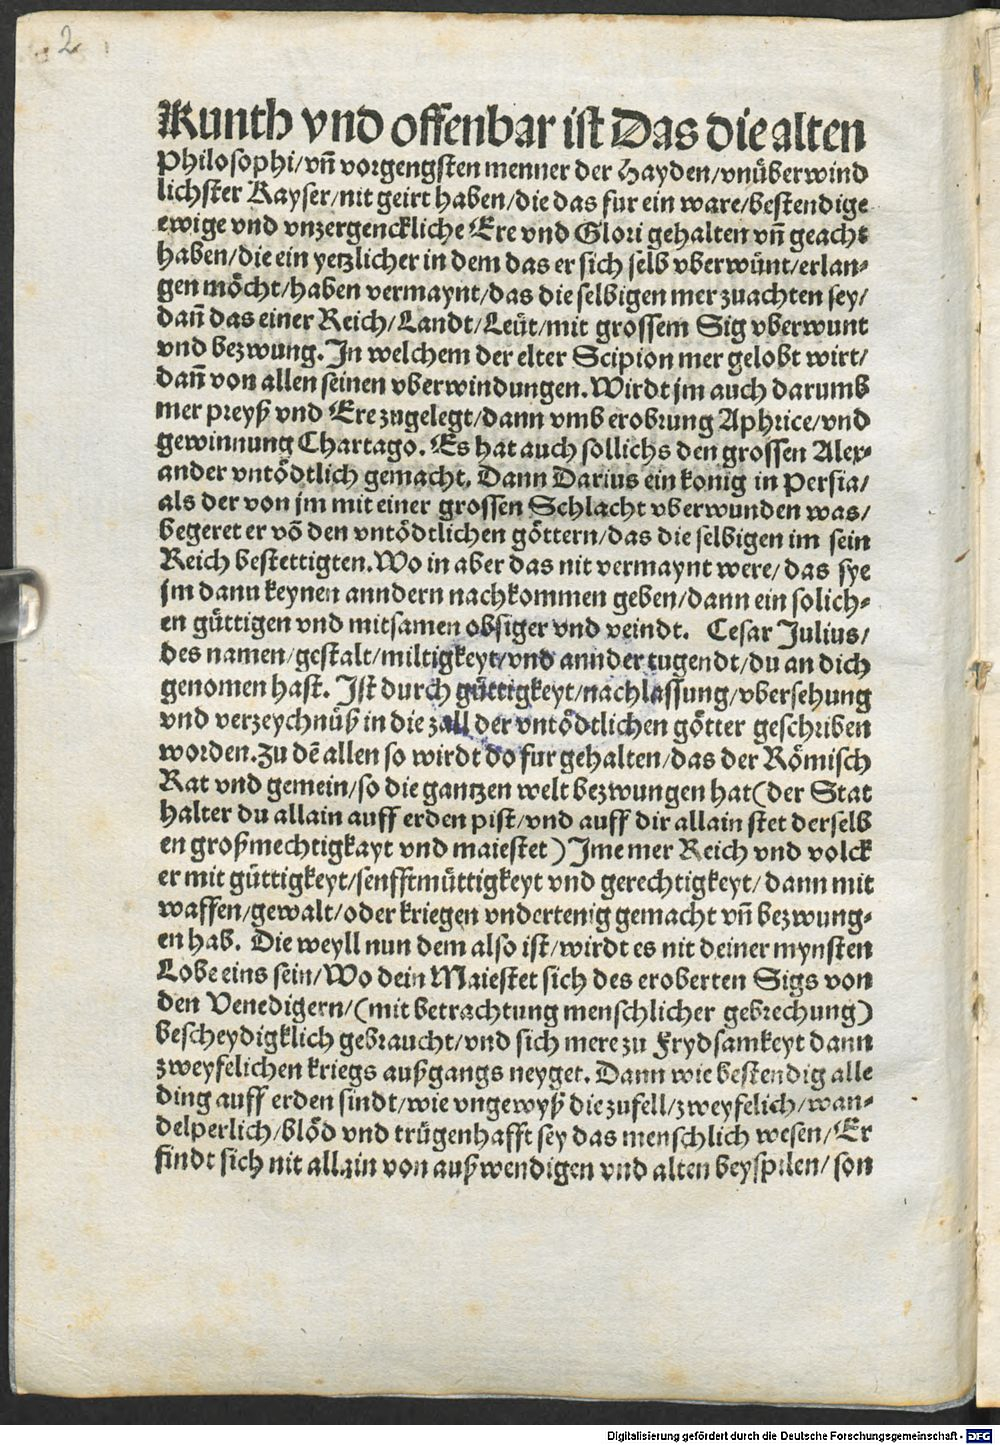 2
Kunth vnd offenbar ist Das die alten
Philosophi/vñ vorgengsten menner der Hayden/vnüberwind
lichster Kayser/nit geirt haben/die das fur ein ware/bestendige
ewige vnd vnzergenckliche Ere vnd Glori gehalten vñ geacht
haben/die ein yetzlicher in dem das er sich selb vberwünt/erlan⸗
gen möcht/haben vermaynt/das die selbigen mer zuachten sey/
dañ das einer Reich/Landt/Leüt/mit grossem Sig vberwunt
vnd bezwung. In welchem der elter Scipion mer gelobt wirt/
dañ von allen seinen vberwindungen. Wirdt jm auch darumb
mer preyß vnd Ere zugelegt/dann vmb erobrung Aphrice/vnd
gewinnung Chartago. Es hat auch sollichs den grossen Alex⸗
ander vntödtlich gemacht. Dann Darius ein konig in Persia/
als der von jm mit einer grossen Schlacht vberwunden was/
begeret er võ den vntödtlichen göttern/das die selbigen im sein
Reich bestettigten. Wo in aber das nit vermaynt were/das sye
jm dann keynen anndern nachkommen geben/dann ein solich⸗
en güttigen vnd mitsamen obsiger vnd veindt. Cesar Julius/
des namen/gestalt/miltigkeyt/vnd annder tugendt/du an dich
genomen hast. Ist durch güttigkeyt/nachlassung/vbersehung
vnd verzeychnüß in die zall der vntödtlichen götter geschriben
worden. Zu dẽ allen so wirdt do fur gehalten/das der Römisch
Rat vnd gemein/so die gantzen welt bezwungen hat(der Stat
halter du allain auff erden pist/vnd auff dir allain stet derselb
en großmechtigkayt vnd maiestet) Ime mer Reich vnd volck
er mit güttigkeyt/senfftmüttigkeyt vnd gerechtigkeyt/dann mit
waffen/gewalt/oder kriegen vndertenig gemacht vñ bezwung⸗
en hab. Die weyll nun dem also ist/wirdt es nit deiner mynsten
Lobe eins sein/Wo dein Maiestet sich des eroberten Sigs von
den Venedigern/(mit betrachtung menschlicher gebrechung)
bescheydigklich gebraucht/vnd sich mere zu Frydsamkeyt dann
zweyfelichen kriegs außgangs neyget. Dann wie bestendig alle
ding auff erden sindt/wie vngewyß die zufell/zweyfelich/wan⸗
delperlich/blöd vnd trügenhafft sey das menschlich wesen/Er
findt sich nit allain von außwendigen vnd alten beyspilen/son
Digitalisierung gefördert durch die Deutsche Forschungsgemeinschaft - DFG